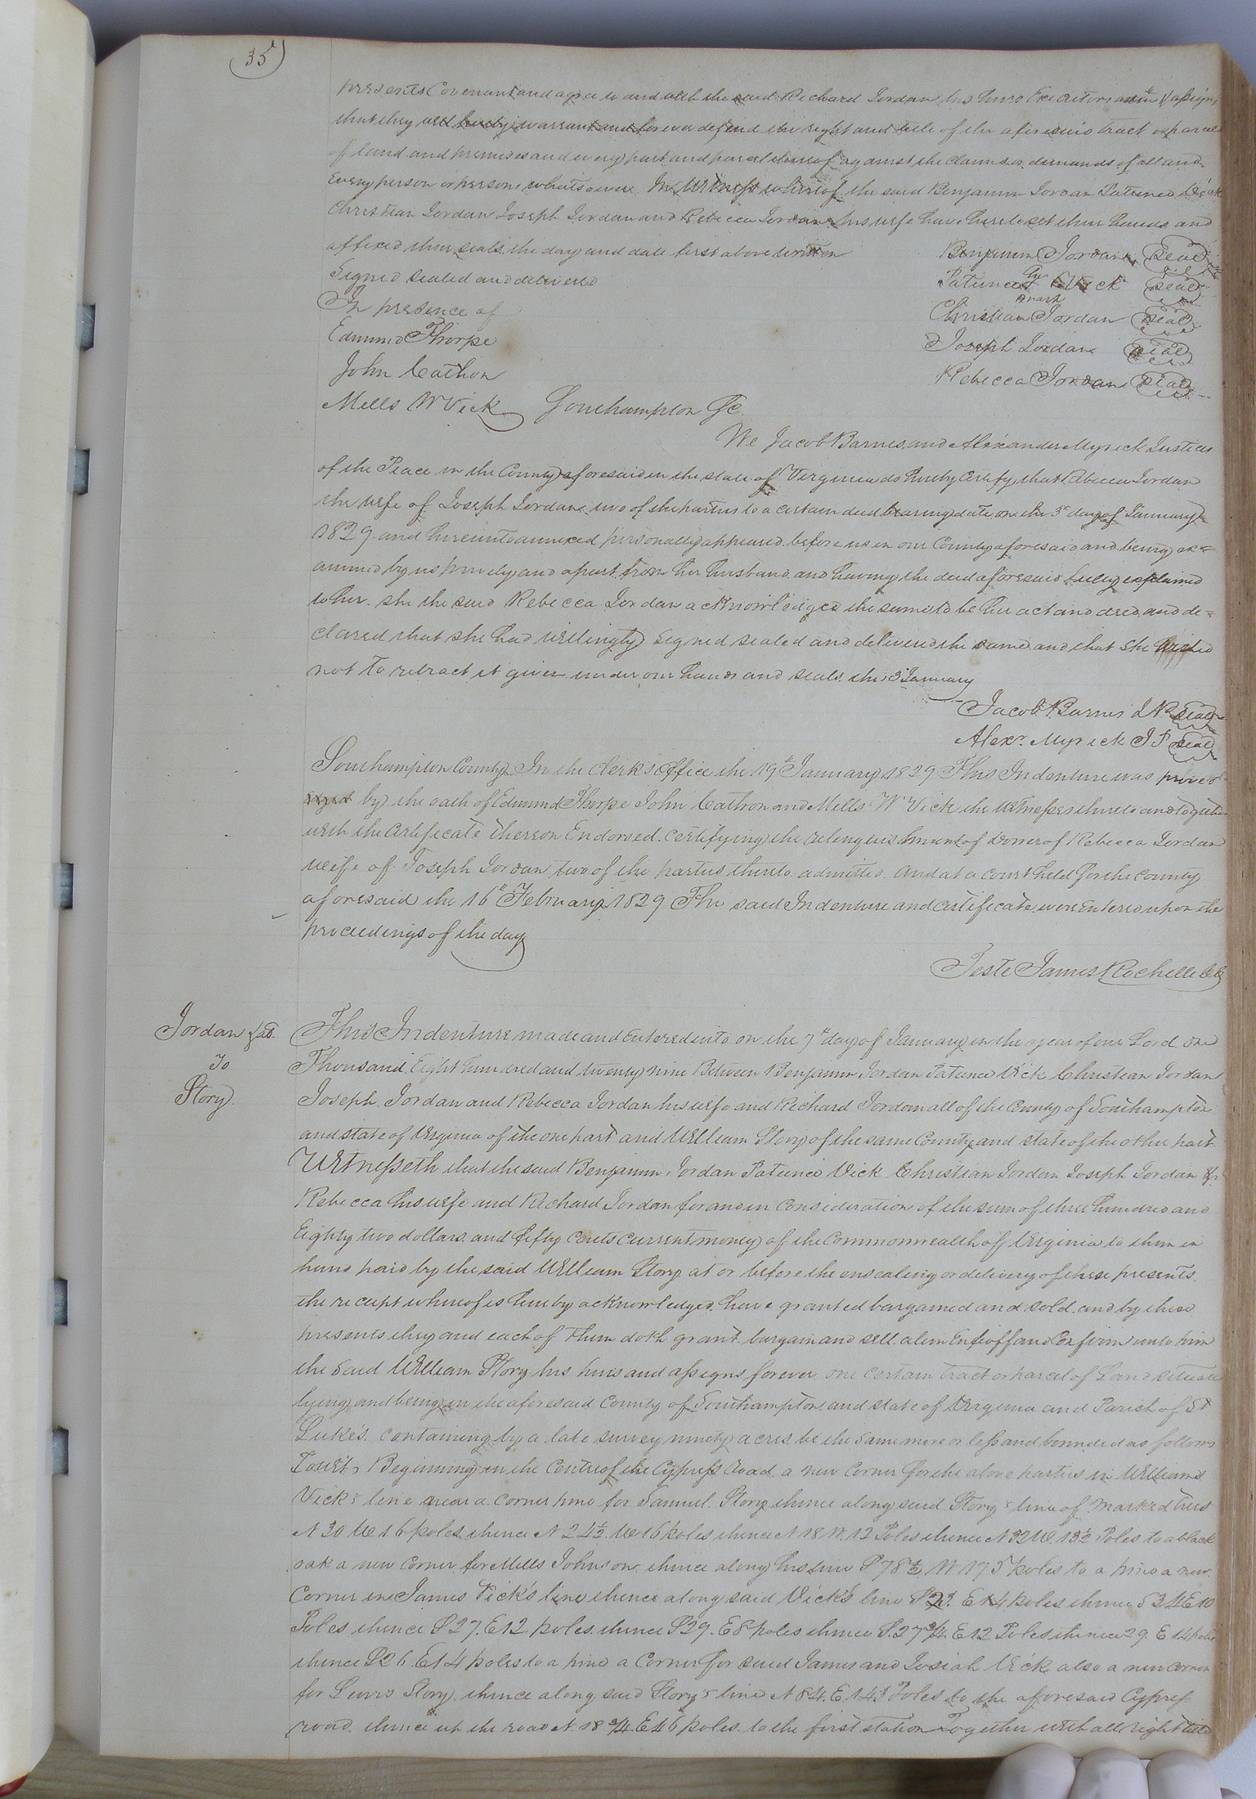 35
presents Covenant and agree to and with the said Richard Jordan his heirs Executors adm & assigns
that they will hereby warrant and forever defend the right and title of the aforesaid tract or parcel
of land and premises and every part and parcel thereof against the claims or demands of all and
Every person or persons whatsoever In Witness whereof the said Benjamin Jordan Patience Vick
Christian Jordan Joseph Jordan and Rebecca Jordan his wife have hereto set their hands and
affixed their seals the day and date first above written Benjamin Jordan Seal
Signed sealed and delivered Patience Vick Seal
mark
In presence of Christian Jordan Seal
Edmund Thorpe Joseph Jordan Seal
John Cathon Rebecca Jordan Seal
Mells W Vick Southampton Sc.
We Jacob Barnes and Alexander Myrick Justices
of the Peace in the County aforesaid in the state of Virginia do hereby Certify that Rebecca Jordan
the wife of Joseph Jordan two of the parties to a certain deed bearing date on the 3d day of January
1829 and hereunto annexed personally appeared before us in our County aforesaid and being ex=
amined by us privily and apart from her husband and having the deed aforesaid fully explained
to her. she the said Rebecca Jordan acknowledged the same to be her act and deed and de=
clared that she had willingly signed sealed and delivered the same and that she wished
not to retract it given under our hands and seals this 3d January
Jacob Barnes J P Seal
Alexr. Myrick J P Seal
Southampton County In the Clerk's Office the 19th January 1829 This Indenture was proved
by the oath of Edmund Thorpe John Cathron and Mells W Vick the Witnesses thereto and together
with the Certificate thereon Endorsed certifying the relinquishment of Dower of Rebecca Jordan
wife of Joseph Jordan two of the parties thereto admitted. And at a court held for the County
aforesaid the 16th February 1829 The said Indenture and certificate were Entered upon the
proceedings of the day
Teste James Rochelle
Jordan &als.
To
Story
This Indenture made and entered into on the 7th day of January in the year of our Lord one
Thousand Eight hundred and twenty nine Between Benjamin Jordan Patience Vick Christian Jordan
Joseph Jordan and Rebecca Jordan his wife and Richard Jordan all of the County of Southampton
and state of Virginia of the one part and William Story of the same County and state of the other part
Witnesseth that the said Benjamin Jordan Patience Vick Christian Jordan Joseph Jordan &
Rebecca his wife and Richard Jordan for and in Consideration of the sum of three hundred and
Eighty two dollars and fifty cents current money of the Commonwealth of Virginia to them in
hand paid by the said William Story at or before the ensealing or delivery of these presents
the receipt whereof is hereby acknowledged have granted bargained and sold and by these
presents they and each of them doth grant bargain and sell alien Enfeoff and Confirm unto him
the said William Story his heirs and assigns forever one certain tract or parcel of Land situate
lying and being in the aforesaid County of Southampton and state of Virginia and Parish of St
Luke's. containing by a late survey ninety acres be the same more or less and bounded as follows
Towit, Beginning in the Centre of the Cypress Road a new Corner for the above parties in William
Vick's line near a Corner pine for Samuel Story thence along said Story's line of marked trees
N 30 W 16 poles thence N 24½ W 16 poles thence N 18 W. 12 Poles thence N 32 W. 13½ Poles to a black
oak a new Corner for Mells Johnson. thence along his line S 78½ W 175 poles to a pine a new
Corner in James Vick's line thence along said Vick's line S 21 E 14 poles thence S 24 E 10
Poles thence S 27. E 12 poles. thence S 29. E 8 poles thence S. 27¾ E 12 Poles thence 29. E 14 poles
thence S 26 E 14 poles to a pine a Corner for said James and Josiah Vick also a new Corner
for Lewis Story. thence along said Story's line N 84. E 143 Poles to the aforesaid Cypress
road. thence up the road N 18¾ E 46 poles to the first station Together with all right title